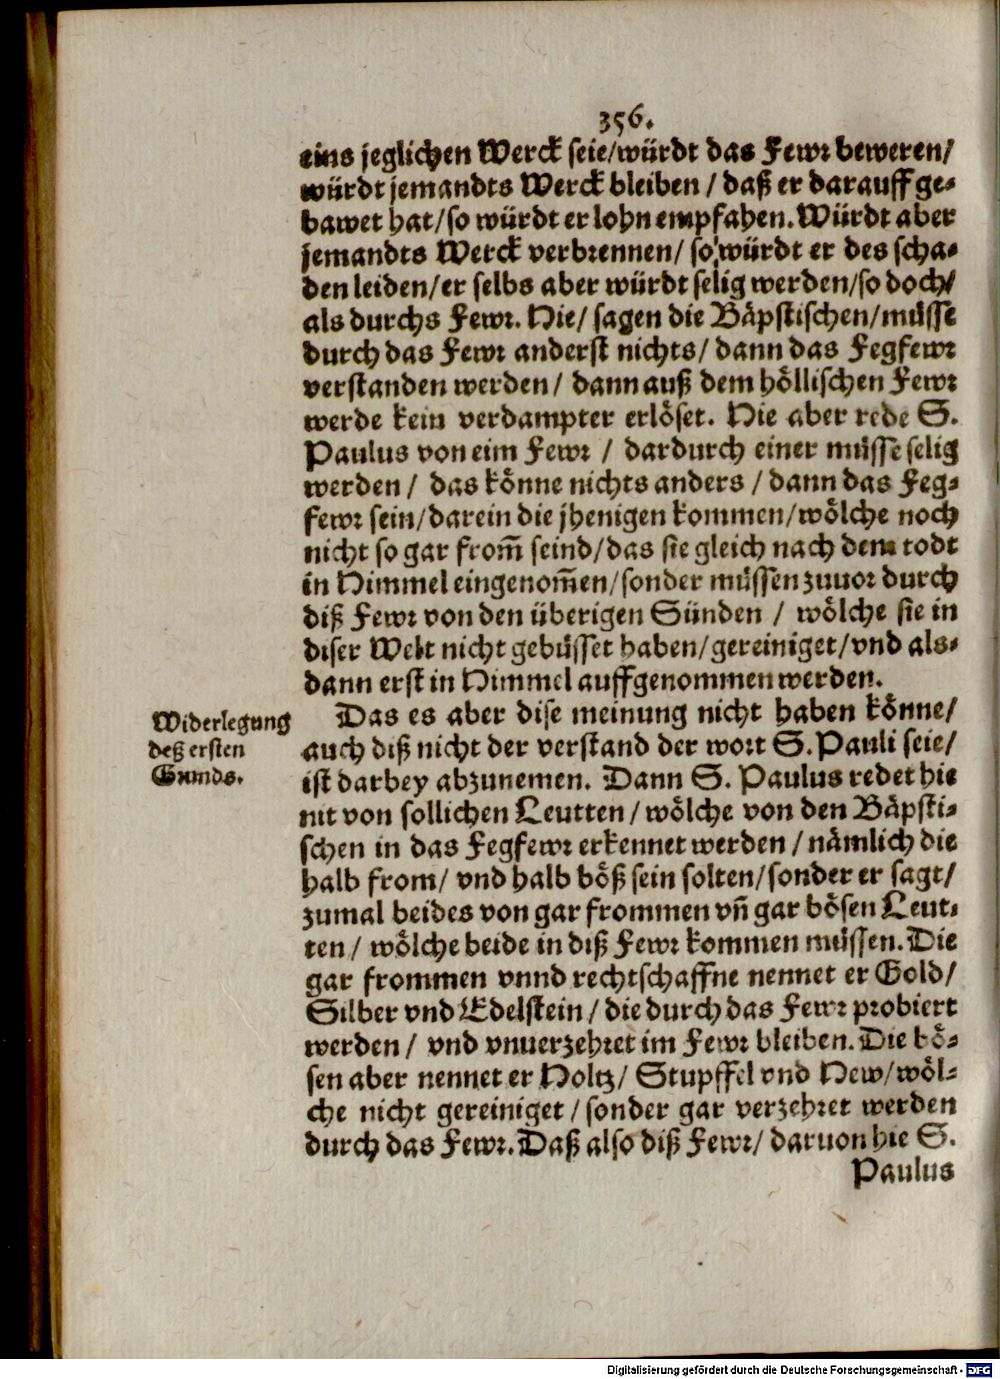 356.
eins jeglichen Werck seie/würdt das Fewr beweren/
würdt jemandts Werck bleiben / daß er darauff ge-
bawet hat/so würdt er lohn empfahen. Würdt aber
jemandts Werck verbrennen/ so würdt er des scha-
den leiden/er selbs aber würdt selig werden/so doch/
als durchs Fewr. Hie/ sagen die Bäpstischen/müsse
durch das Fewr anderst nichts/ dann das Fegfewr
verstanden werden/ dann auß dem höllischen Fewr
werde kein verdampter erlöset. Hie aber rede S.
Paulus von eim Fewr / dardurch einer müsse selig
werden / das könne nichts anders / dann das Feg-
fewr sein/darein die jhenigen kommen/wölche noch
nicht so gar from̃ seind/das sie gleich nach dem todt
in Himmel eingenom̃en/sonder müssen zuuor durch
diß Fewr von den überigen Sünden / wölche sie in
diser Welt nicht gebüsset haben/gereiniget/vnd als-
dann erst in Himmel auffgenommen werden.
Widerlegung
deß ersten
Grunds.
Das es aber dise meinung nicht haben könne/
auch diß nicht der verstand der wort S. Pauli seie/
ist darbey abzunemen. Dann S. Paulus redet hie
nit von sollichen Leutten / wölche von den Bäpsti-
schen in das Fegfewr erkennet werden / nämlich die
halb from/ vnd halb böß sein solten/sonder er sagt/
zumal beides von gar frommen vñ gar bösen Leut-
ten / wölche beide in diß Fewr kommen müssen. Die
gar frommen vnnd rechtschaffne nennet er Gold/
Silber vnd Edelstein / die durch das Fewr probiert
werden / vnd vnuerzehret im Fewr bleiben. Die bö-
sen aber nennet er Holtz/ Stupffel vnd Hew/wöl-
che nicht gereiniget / sonder gar verzehret werden
durch das Fewr. Daß also diß Fewr/ daruon hie S.
Paulus
Digitalisierung gefördert durch die Deutsche Forschungsgemeinschaft - DFG